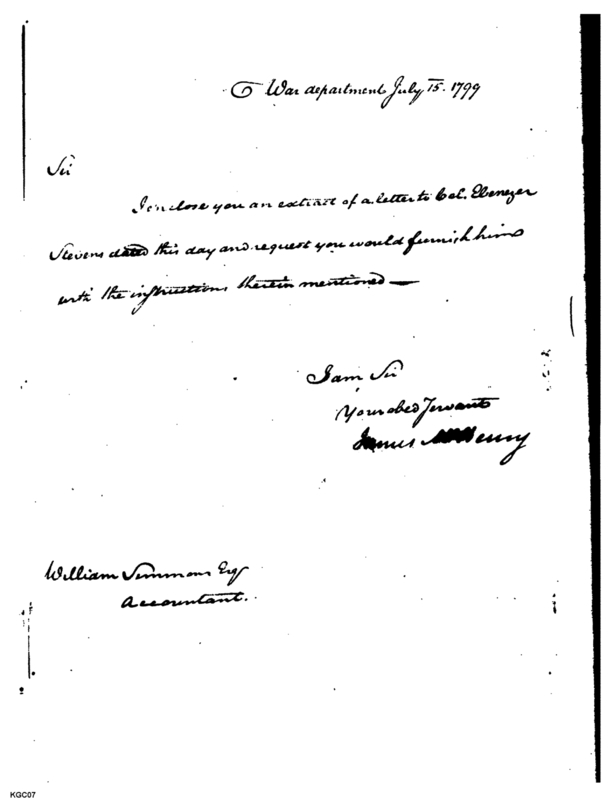 War department July 15. 1799
Sir
I enclose you an extract of a letter to Col. Ebenezer
Stevens dated this day and request you would furnish him
with the instructions therein mentioned —
I am Sir
Your obed Servant
James McHenry
William Simmons Esq
Accountant.
KGC07